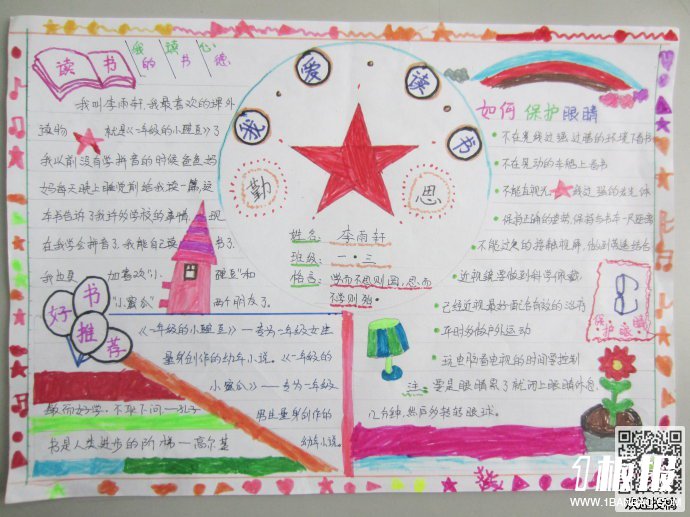 读书
我的读书心德
我叫李雨轩,我最喜欢的课外
读物就是《一年级的小豌豆》了
我以前没有学拼音的时候爸爸妈
妈每天晚上睡觉前给我读一篇,这
本书告诉了我许多学校的事情,现
在我学会拼音了,我能自己读书了.
我也更加喜欢“小豌豆”和
“小蜜瓜”两个朋友了.
好书推荐
《一年级的小豌豆》一专为一年级女生
量身创作的幼年小说.《一年级的
小蜜瓜》——专为一年级
男且量身创作的
幼年小说.
敏而好学,不耻下问——孔子
书是人类进步的阶梯——高尔基
我爱读书
勤思
姓名:李雨轩
班级:一·三
格言:学而不思则罔,思而
不学则殆.
如何保护眼睛
不在光线过强过暗的环境下看书
不在晃动的车厢上看书
不能直视光线过强的发光体
保持正确的坐姿,保持与书本一尺距离
不能过久的接触视屏,做到劳逸结合
近视镜要做到科学佩戴
已经近视,最好面己有效的治疗
平时多做户外运动
玩电脑看电视的时间要控制
注:要是眼睛累了就闭上眼睛休息
几分钟,然后多转转眼球.
保护眼睛
1板报
WWW.1BANBAO.COM
欢迎投稿